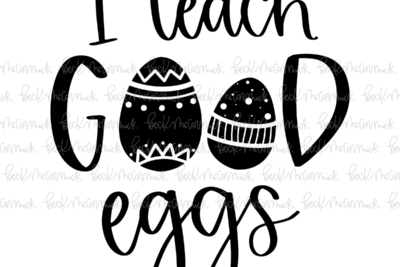 I teach
GOOD
eggs